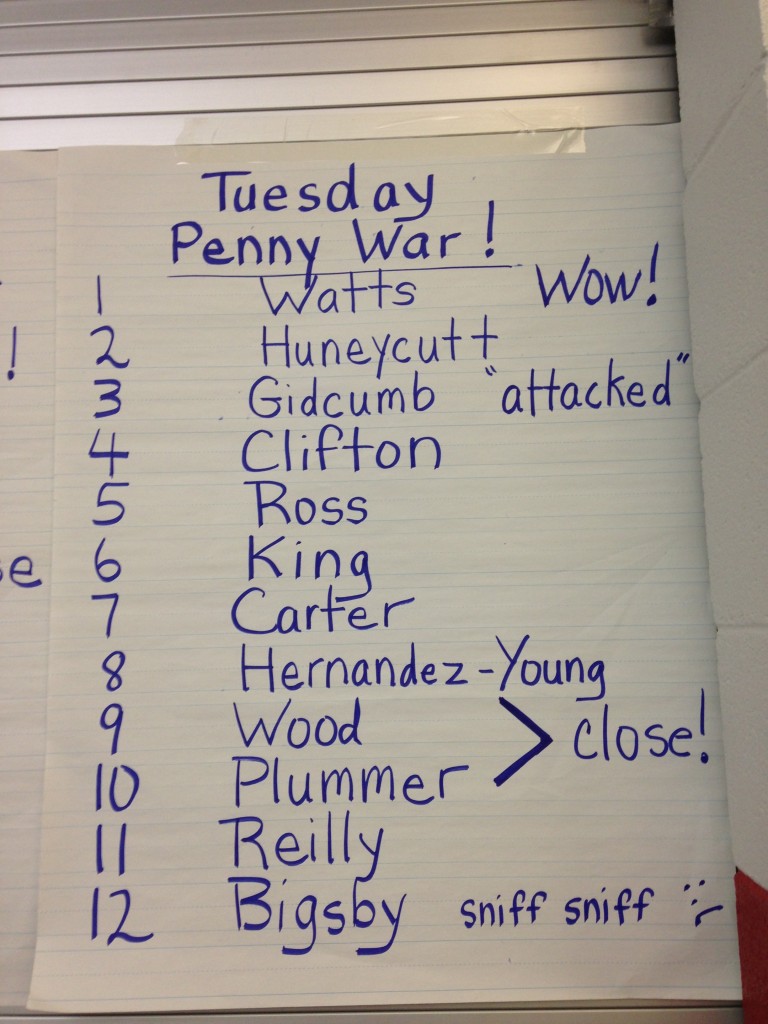 Tuesday
Penny War!
1 Watts Wow!
2 Huneycutt
3 Gidcumb "attacked"
4 Clifton
5 Ross
6 King
7 Carter
8 Hernandez-Young
9 Wood > close!
10 Plummer
11 Reilly
12 Bigsby sniff sniff :(
!
e